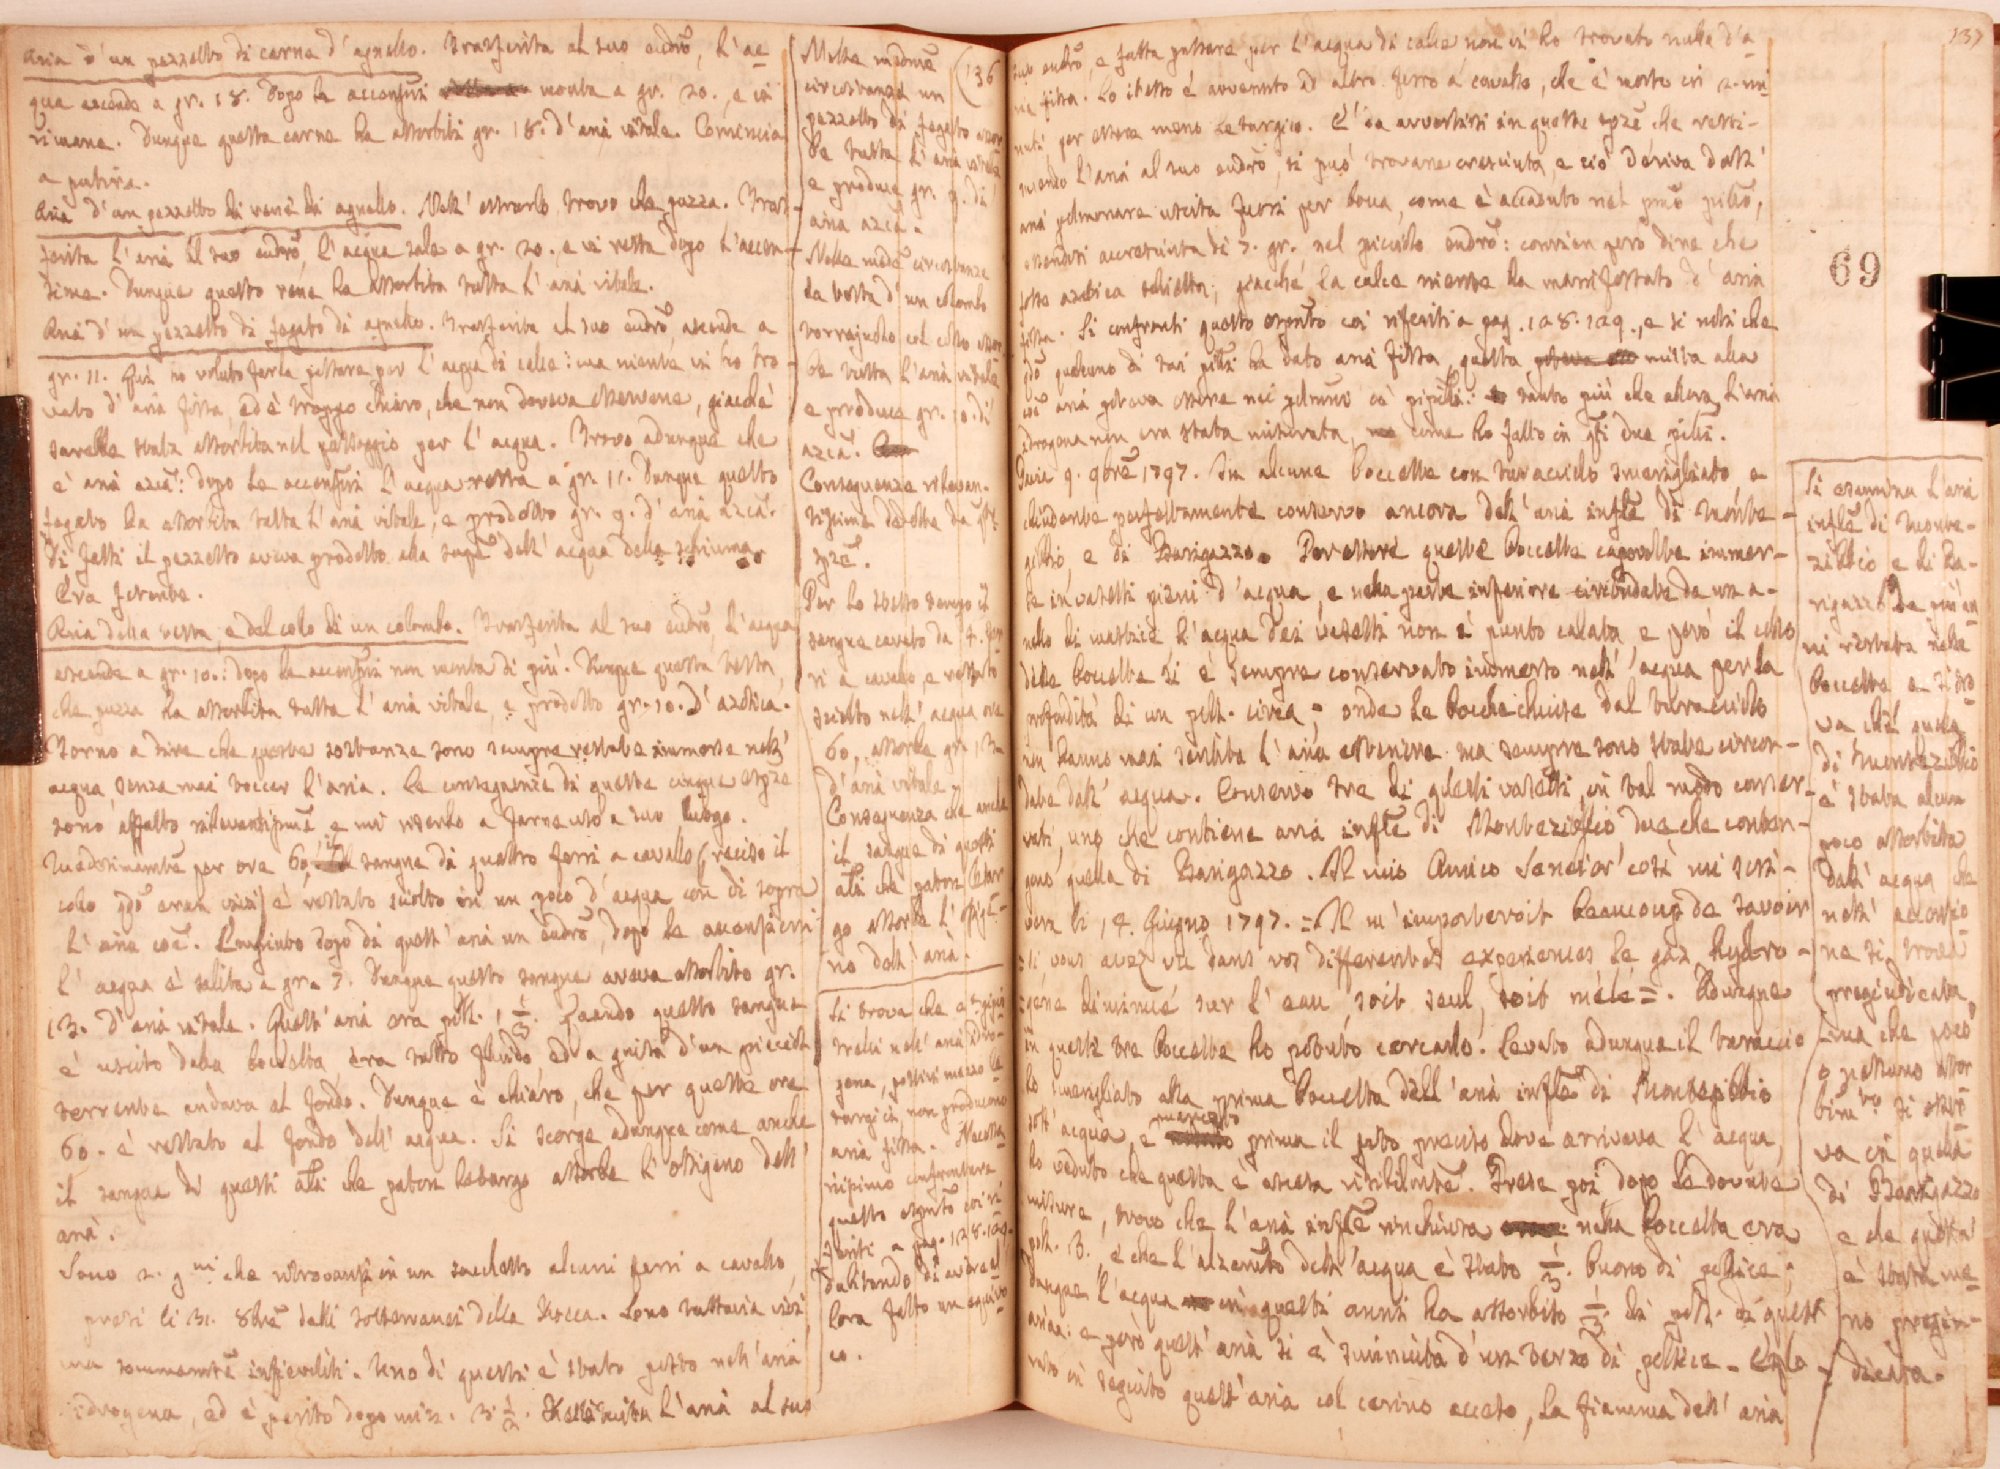 Aria d'un pezzetto di carne d'agnello. Trasferita al suo eudro, l'ac-
qua ascende a gr. 18. Dopo le accensioni monta a gr. 20., e vi
rimane. Dunque questa carne ha assorbiti gr. 18. d'aria vitale. Comincia
a putire.
Aria d'un pezzetto di rene di agnello. Nell'estrarlo trovo che puzza. Tras-
ferita l'aria al suo eudro, l'acqua sale a gr. 20. e vi resta dopo l'accen-
sione. Dunque questo rene ha assorbita tutta l'aria vitale.
Aria d'un pezzetto di fegato di agnello. Trasferita al suo eudro, ascende a
gr. 11. Qui ho voluto farla passare per l'acqua di calce: ma niente vi ho tro-
vato d'aria fissa, ed è troppo chiaro, che non doveva esservene, giacché
sarebbe stata assorbita nel passaggio per l'acqua. Trovo adunque che
è aria azca: dopo le accensioni l'acqua resta a gr. 11. Dunque questo
fegato ha assorbita tutta l'aria vitale, e prodotto gr. 9. d'aria azca.
Di fatti il pezzetto aveva prodotto alla supe dell'acqua della schiuma.
Era fetente.
Aria della testa, e del colo di un colombo. Trasferita al suo eudro, l'acqua
ascende a gr. 10.: dopo le accensioni non monta di più. Dunque questa testa,
che puzza ha assorbita tutta l'aria vitale, e prodotto gr. 10. d'azotica.
Torno a dire che queste sostanze sono sempre restate immerse nell'
acqua, senza mai toccar l'aria. Le conseguenze di queste cinque espze
sono affatto rilevantissime, e mi riserbo a farne uso a suo luogo.
Medesimamente per ore 60, il sangue di quattro ferri a cavallo (reciso il
colo qdo eran vivi) è restato sciolto in un poco d'acqua con di sopra
l'aria coe. Congiunto dopo di quest'aria un eudro, dopo le accensioni
l'acqua è salita a gr. 7. Dunque questo sangue aveva assorbito gr.
13. d'aria vitale. Quest'aria era poll. 1 1/3. Quando questo sangue
è uscito dalla boccetta, era tutto fluido, ed a guisa d'un piccolo
torrente andava al fondo. Dunque è chiaro, che per queste ore
60. è restato al fondo dell'acqua. Si scorge adunque come anche
il sangue di questi ali che paton letargo assorbe l'ossigeno dell'
aria.
Sono 2. gni che ritrovansi in un sacchetto alcuni ferri a cavallo,
presi li 31. 8bre dalli sotterranei della Rocca. Sono tuttavia vivi,
ma sommamente infievoliti. Uno di questi è stato posto nell'aria
idrogena, ed è perito dopo min. 3 1/2. Restituita l'aria al suo
136
Nelle medme
circostanze un
pezzetto di fegato assor-
be tutta l'aria vitale
e produce gr. 9. di
aria azca.
Nelle mede circostanze
la testa d'un colombo
torraiuolo col collo assor-
be tutta l'aria vitale
e produce gr. 10. di
azca.
Conseguenze rilevan-
tissime dedotte da qste
spze.
Per lo stesso tempo il
sangue cavato da 4. fer-
ri a cavallo, e restato
sciolto nell'acqua ore
60, assorbe gr. 13.
d'aria vitale.
Conseguenza che anche
il sangue di questi
ali che paton letar-
go assorbe l'ossige-
no dell'aria.
Si trova che e
messi nell'aria idro-
gena, mezzo le-
targici, non producono
aria fissa. Necessa-
rissimo confrontare
questo espnto coi ri-
feriti a pag. 128. 129.
dubitando di aver al-
lora fatto un equivo-
co.
137
suo eudro, e fatta passare per l'acqua di calce non vi ho trovato nulla d'a-
ria fissa. Lo stesso è avvenuto ad altro ferro a cavallo, che è morto in 2. mi-
nuti per essere meno letargico. È da avvertirsi in queste spze che resti-
tuendo l'aria al suo eudro, si può trovare cresciuta, e ciò deriva dall'
aria polmonare uscita fuori per bocca, come è accaduto nel pmo pipllo,
essendosi accresciuta di 7. gr. nel piccolo eudro: convien però dire che
fosse azotica schietta, giacché la calce niente ha manifestato d'aria
fissa. Si confronti questo espnto coi riferiti a pag. 128. 129., e si noti che
qdo qualcuno di tai pipli ha dato aria fissa, questa mista alla
coe aria poteva essere nei polmoni de' pipistli: tanto più che allora l'aria
idrogena non era stata misurata, come ho fatto in qti due pipli.
Pavia 9. 9bre 1797. In alcune boccette con turacciolo smerigliato e
chiudente perfettamente conservo ancora dell'aria infle di Monte-
zibbio, e di Barigazzo. Per essere queste boccette capovolte immer-
se in vasetti pieni d'acqua, e nella parte inferiore circondate da un a-
nello di mastice, l'acqua dei vasetti non è punto calata, e però il collo
delle boccette si è sempre conservato immerso nell'acqua per la
profondità di un poll. circa; onde le bocche chiuse dal turacciolo
non hanno mai sentito l'aria esteriore ma sempre sono state circon-
date dall'acqua. Conservo tre di questi vasetti, in tal modo conser-
vati, uno che contiene aria infle di Montezibbio due che conten-
gono quella di Barigazzo. Il mio Amico Senebier così mi scri-
veva li 14. Giugno 1797. = Il m'importeroit beaucoup de savoir
= si vous avez vu dans vos differentes experiences le gaz hydro-
= gène diminué sur l'eau, soit seul, soit mêlé =. Adunque
in queste tre boccette ho potuto cercarlo. Levato adunque il turaccio-
lo smerigliato alla prima boccetta dell'aria infle di Montezibbio
sott'acqua, e marcato prima il sito preciso dove arrivava l'acqua,
ho veduto che questa è ascesa visibilmte. Prese poi dopo le dovute
misure, trovo che l'aria infle rinchiusa nella boccetta era
poll. 3., e che l'alzamto dell'acqua è stato 1/3. buono di pollice;
dunque l'acqua in questi anni ha assorbito 1/3. di poll. di quest'
aria. e però quest'aria si è diminuita d'un terzo di pollice. Esplo-
rato in seguito quest'aria col cerino acceso, la fiamma dell'aria
69
Si esamina l'aria
infle di Monte-
zibbio e di Ba-
rigazzo da più an-
ni restata nelle
boccette e si tro-
va che quella
di Montezibbio
è stata alcun
poco assorbita
dall'acqua che
nell'accensio-
ne si trova
pregiudicata,
ma che poco
o nessuno assor-
bimto si osser-
va in quella
di Barigazzo
e che questa
è stata me-
no pregiu-
dicata.